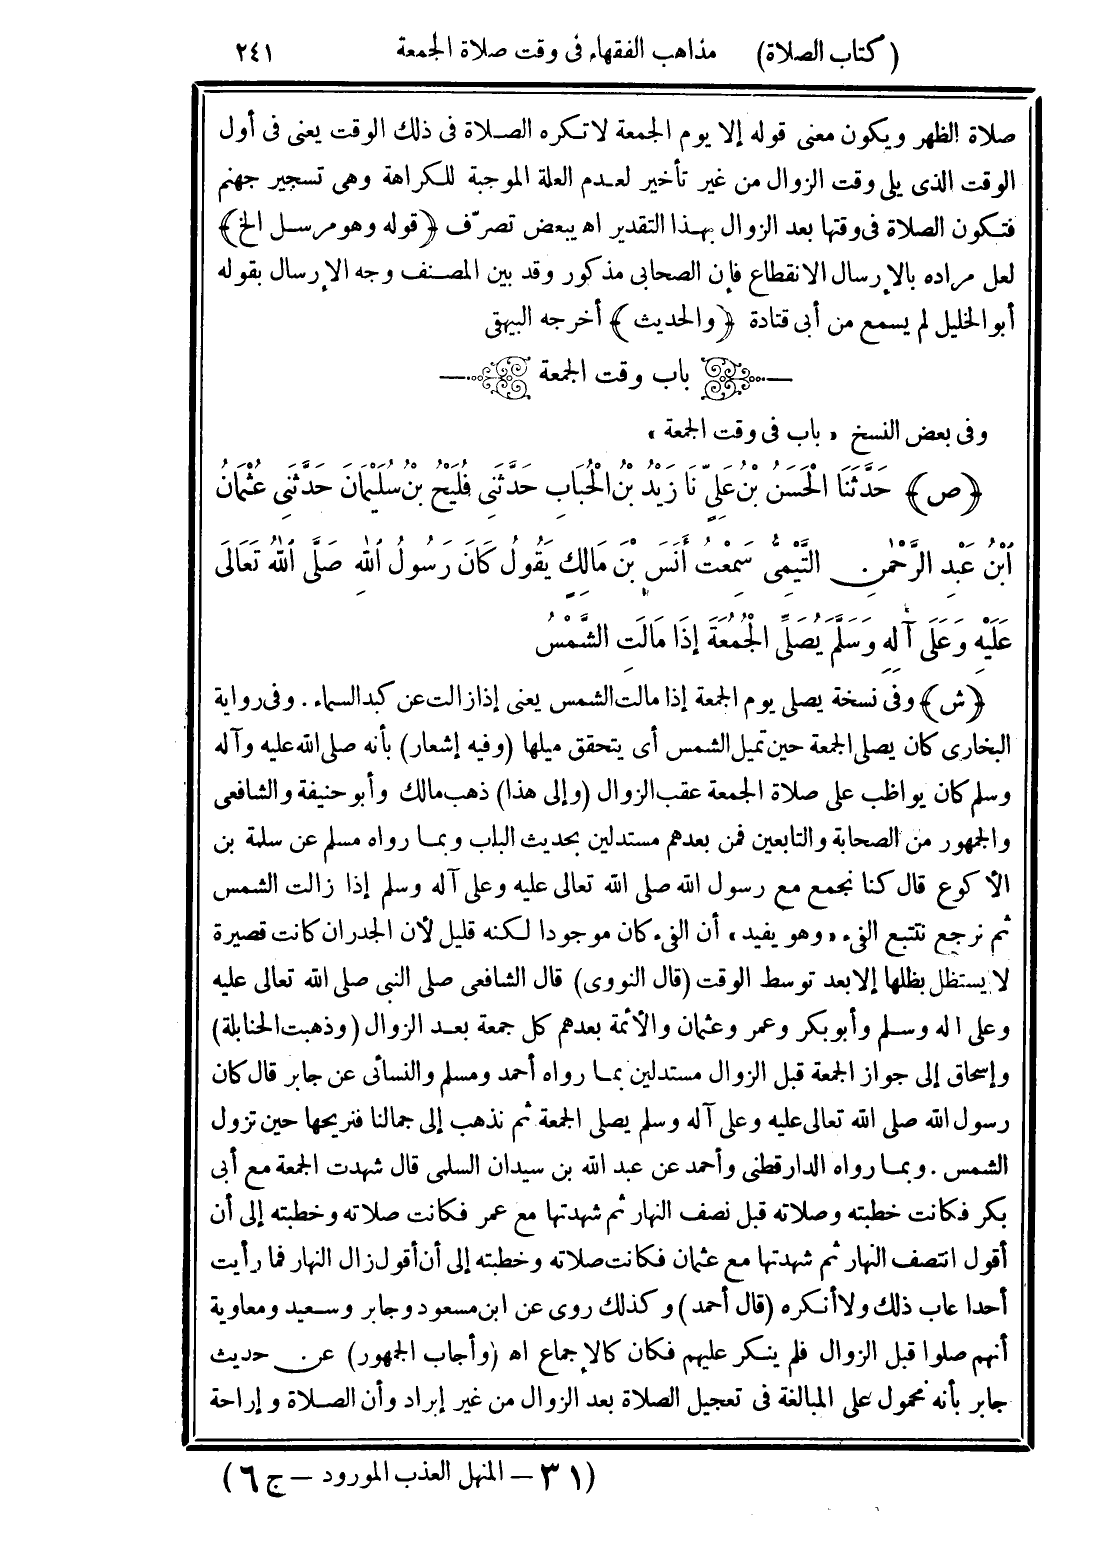 (كتاب الصلاة) مذاهب الفقهاء فى وقت صلاة الجمعة ٢٤١
صلاة الظهر ويكون معنى قوله إلا يوم الجمعة لا تكره الصلاة فى ذلك الوقت يعنى فى أول
الوقت الذى يلى وقت الزوال من غير تأخير لعدم العلة الموجبة للكراهة وهى تسجير جهنم
فتكون الصلاة فى وقتها بعد الزوال بهذا التقدير اه ببعض تصرّف ﴿قوله وهو مرسل الخ﴾
لعل مراده بالإرسال الانقطاع فإن الصحابى مذكور وقد بين المصنف وجه الإرسال بقوله
أبو الخليل لم يسمع من أبى قتادة ﴿والحديث﴾ أخرجه البيهقى
باب وقت الجمعة
وفى بعض النسخ «باب فى وقت الجمعة»
﴿ص﴾ حَدَّثَنَا الْحَسَنُ بْنُ عَلِيٍّ نَا زَيْدُ بْنُ الْحُبَابِ حَدَّثَنِى فُلَيْحُ بْنُ سُلَيْمَانَ حَدَّثَنِى عُثْمَانُ
ابْنُ عَبْدِ الرَّحْمٰنِ التَّيْمِىُّ سَمِعْتُ أَنَسَ بْنَ مَالِكٍ يَقُولُ كَانَ رَسُولُ اللهِ صَلَّى اللهُ تَعَالَى
عَلَيْهِ وَعَلَى آلِهِ وَسَلَّمَ يُصَلِّى الْجُمُعَةَ إِذَا مَالَتِ الشَّمْسُ
﴿ش﴾ وفى نسخة يصلى يوم الجمعة إذا مالت الشمس يعنى إذا زالت عن كبد السماء. وفى رواية
البخارى كان يصلى الجمعة حين تميل الشمس أى يتحقق ميلها (وفيه إشعار) بأنه صلى الله عليه وآله
وسلم كان يواظب على صلاة الجمعة عقب الزوال (وإلى هذا) ذهب مالك وأبو حنيفة والشافعى
والجمهور من الصحابة والتابعين فمن بعدهم مستدلين بحديث الباب وبما رواه مسلم عن سلمة بن
الأكوع قال كنا نجمع مع رسول الله صلى الله تعالى عليه وعلى آله وسلم إذا زالت الشمس
ثم نرجع نتتبع الفىء «وهو يفيد» أن الفىء كان موجودا لكنه قليل لأن الجدران كانت قصيرة
لا يستظل بظلها إلا بعد توسط الوقت (قال النووى) قال الشافعى صلى النبى صلى الله تعالى عليه
وعلى اله وسلم وأبو بكر وعمر وعثمان والأئمة بعدهم كل جمعة بعد الزوال (وذهبت الحنابلة)
وإسحاق إلى جواز الجمعة قبل الزوال مستدلين بما رواه أحمد ومسلم والنسائى عن جابر قال كان
رسول الله صلى الله تعالى عليه وعلى آله وسلم يصلى الجمعة ثم نذهب إلى جمالنا فنريحها حين تزول
الشمس. وبما رواه الدارقطنى وأحمد عن عبد الله بن سيدان السلمى قال شهدت الجمعة مع أبى
بكر فكانت خطبته وصلاته قبل نصف النهار ثم شهدتها مع عمر فكانت صلاته وخطبته إلى أن
أقول انتصف النهار ثم شهدتها مع عثمان فكانت صلاته وخطبته إلى أن أقول زال النهار فما رأيت
أحدا عاب ذلك ولا أنكره (قال أحمد) وكذلك روى عن ابن مسعود وجابر وسعيد ومعاوية
أنهم صلوا قبل الزوال فلم ينكر عليهم فكان كالإجماع اه (وأجاب الجمهور) عن حديث
جابر بأنه محمول على المبالغة فى تعجيل الصلاة بعد الزوال من غير إبراد وأن الصلاة وإراحة
(٣١ – المنهل العذب المورود – ج ٦)